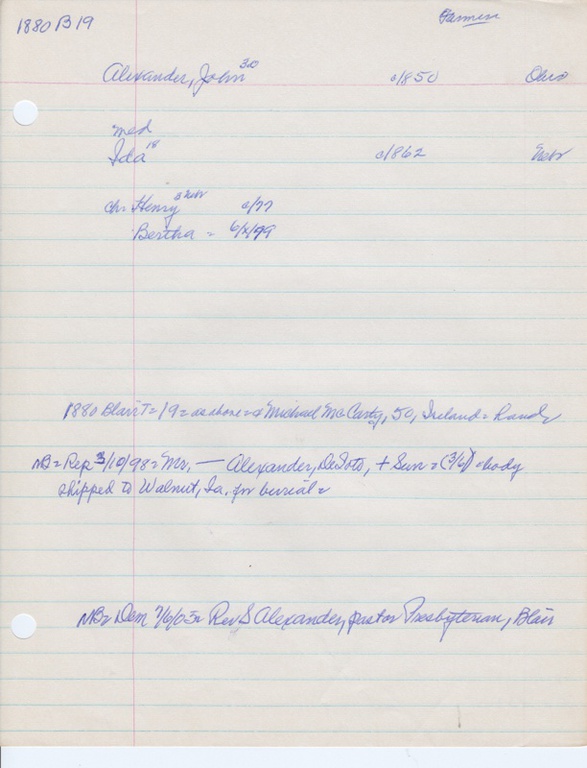 1880 B 19
Farmer
Alexander, John 30 c/850 Ohio
med
Ida 18 c/862 Nebr
ch: Henry 3 Nebr c/77
Bertha = 6/x/99
1880 Blair T = 19 = as above = & Michael McCarty, 50, Ireland = handy
NB = Rep 3/10/98 = Mr. — Alexander, DeSoto, + Sun = (3/6) = body
shipped to Walnut, Ia. for burial =
NB = Dem 7/6/03 = Rev S Alexander, pastor Presbyterian, Blair